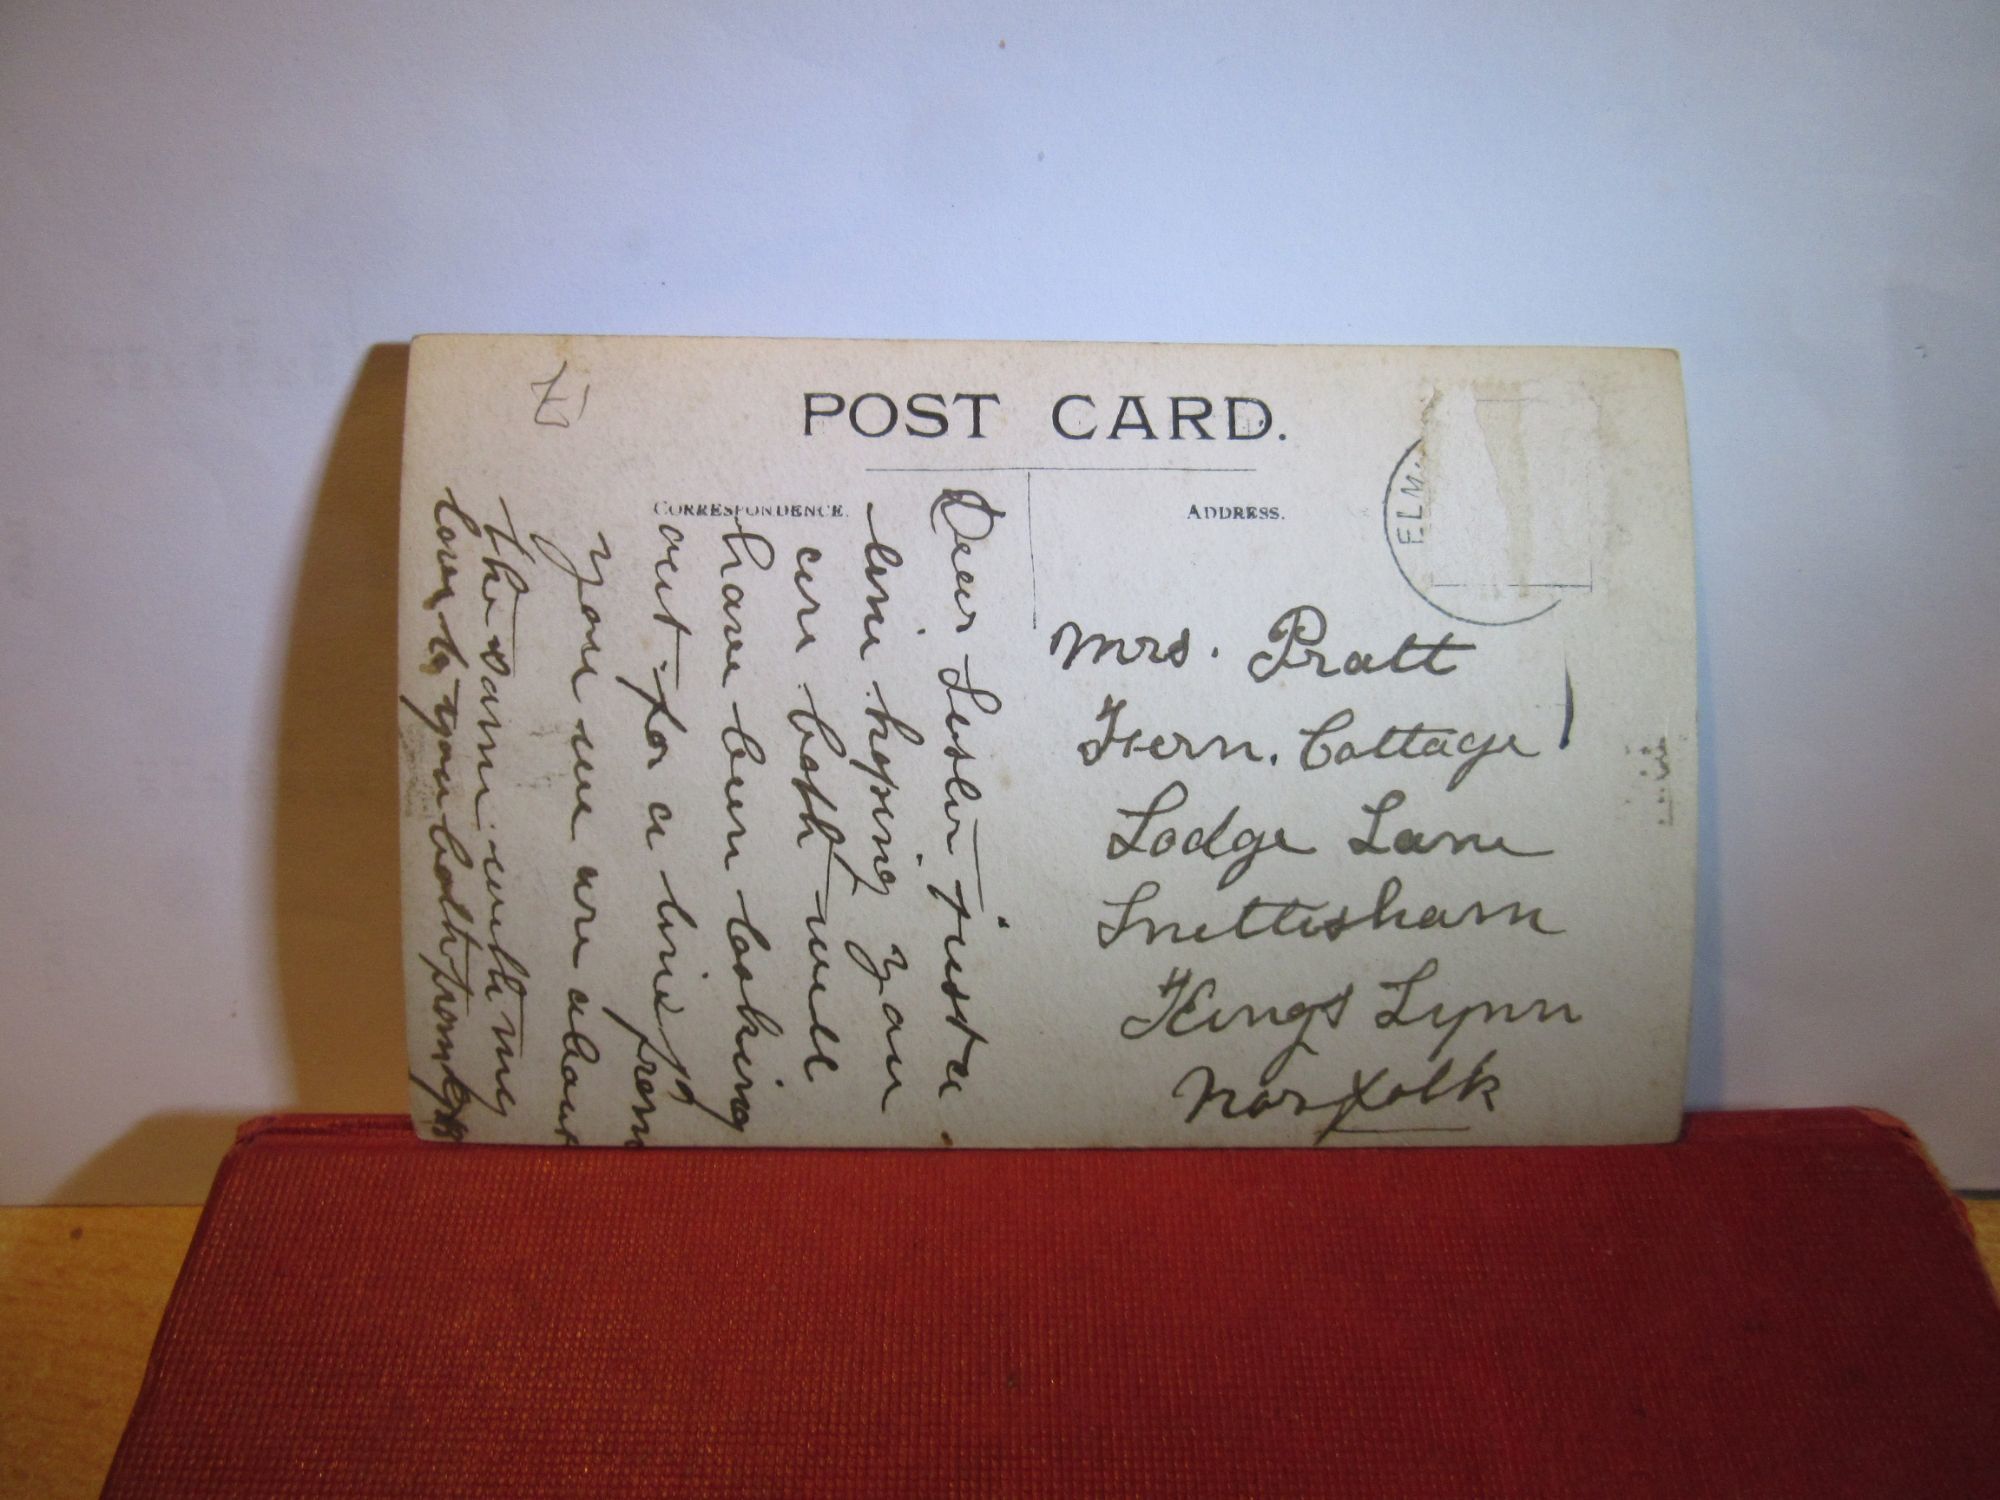 POST CARD.
CORRESPONDENCE.
ADDRESS.
ELM
Dear Sister just a
line hoping you
are both well
have been looking
out for a line from
you we are about
the same with my
love to you both from
Mrs. Pratt
Fern. Cottage
Lodge Lane
Snettisham
Kings Lynn
Norfolk